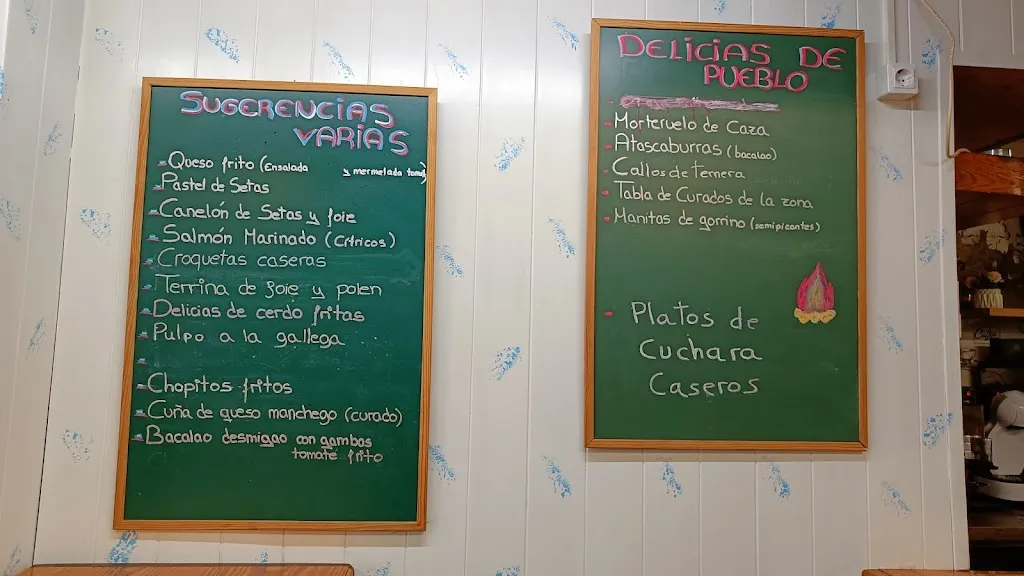 SUGERENCIAS
VARIAS
- Queso frito (Ensalada y mermelada tomate)
- Pastel de Setas
- Canelón de Setas y foie
- Salmón Marinado (Cítricos)
- Croquetas caseras
- Terrina de foie y polen
- Delicias de cerdo fritas
- Pulpo a la gallega
-
- Chopitos fritos
- Cuña de queso manchego (curado)
- Bacalao desmigao con gambas
tomate frito
DELICIAS DE
PUEBLO
- Morteruelo de Caza
- Atascaburras (bacalao)
- Callos de ternera
- Tabla de Curados de la zona
- Manitas de gorrino (semipicantes)
- Platos de
Cuchara
Caseros